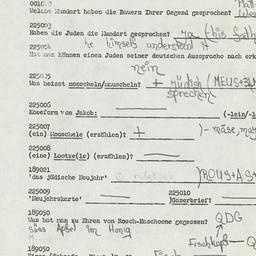 Welche Mundart haben die Bauern Ihrer Gegend gesprochen?
225003
Haben die Juden die Mundart gesprochen? ja (his fath
he himself understood it
225004
Hat man können einen Juden seiner deutschen Aussprache nach erk
nein
225005
Was heisst mooscheln/muuscheln? + jüdisch
sprechen
225006
Koseform von Jakob: (-lein/-l
225007
(ein) Mooschele (erzählen)? +
225008
(eine) Lootze(le) (erzählen)?
189021
'das jüdische Neujahr'
225009 225010
'Neujahrskarte' )Gaserbrief?
189050
Was hat man zu Ehren von Rosch-Haschoone gegessen? QDG
süss Apfel im Honig
Fischkopf
189050